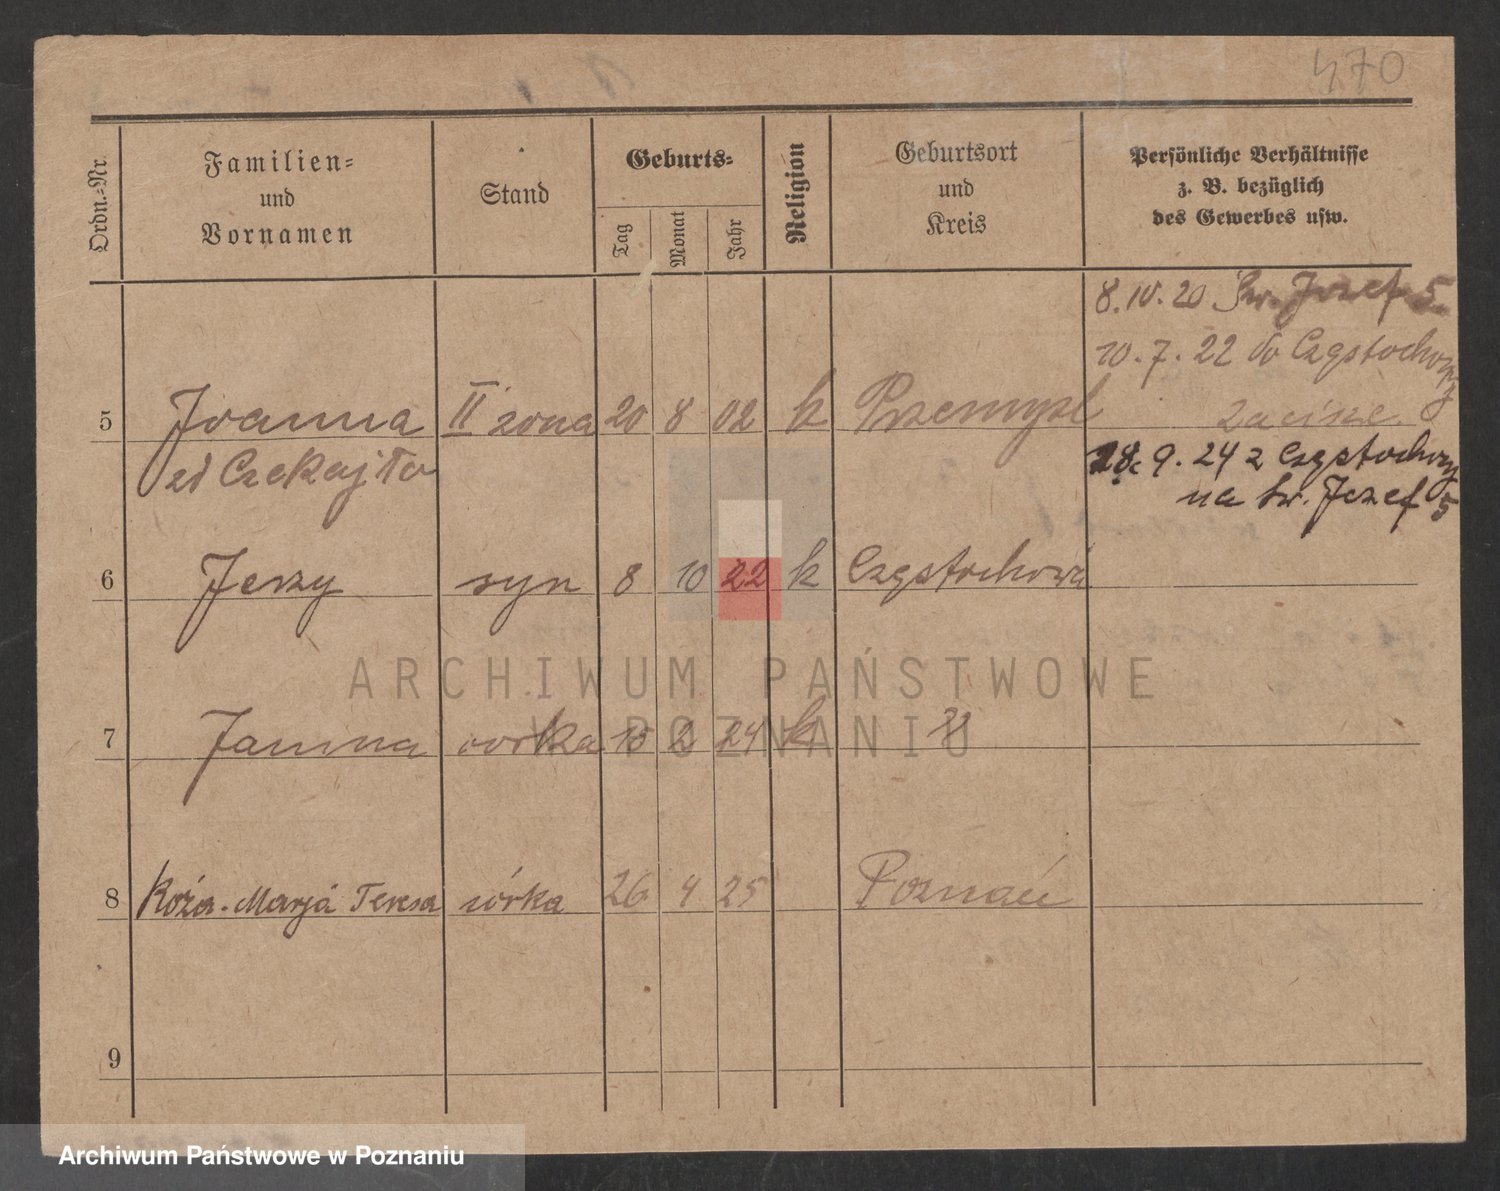 470
Ordn.-Nr.
Familien-
und
Vornamen
Stand
Geburts-
Tag
Monat
Jahr
Religion
Geburtsort
und
Kreis
Persönliche Verhältnisse
z. B. bezüglich
des Gewerbes usw.
8.IV.20 Św. Józef 5.
10.7.22 do Częstochowy
5 Joanna II żona 20 8 02 k Przemyśl
zd Czekajło
28. 9. 24 z Częstochowy
na św. Józef 5
6 Jerzy syn 8 10 22 k Częstochowa
ARCHIWUM PAŃSTWOWE
W POZNANIU
7 Janina córka 15 2 24 k "
8 Róża-Marja Teresa córka 26 4 25 Poznań
9
Archiwum Państwowe w Poznaniu